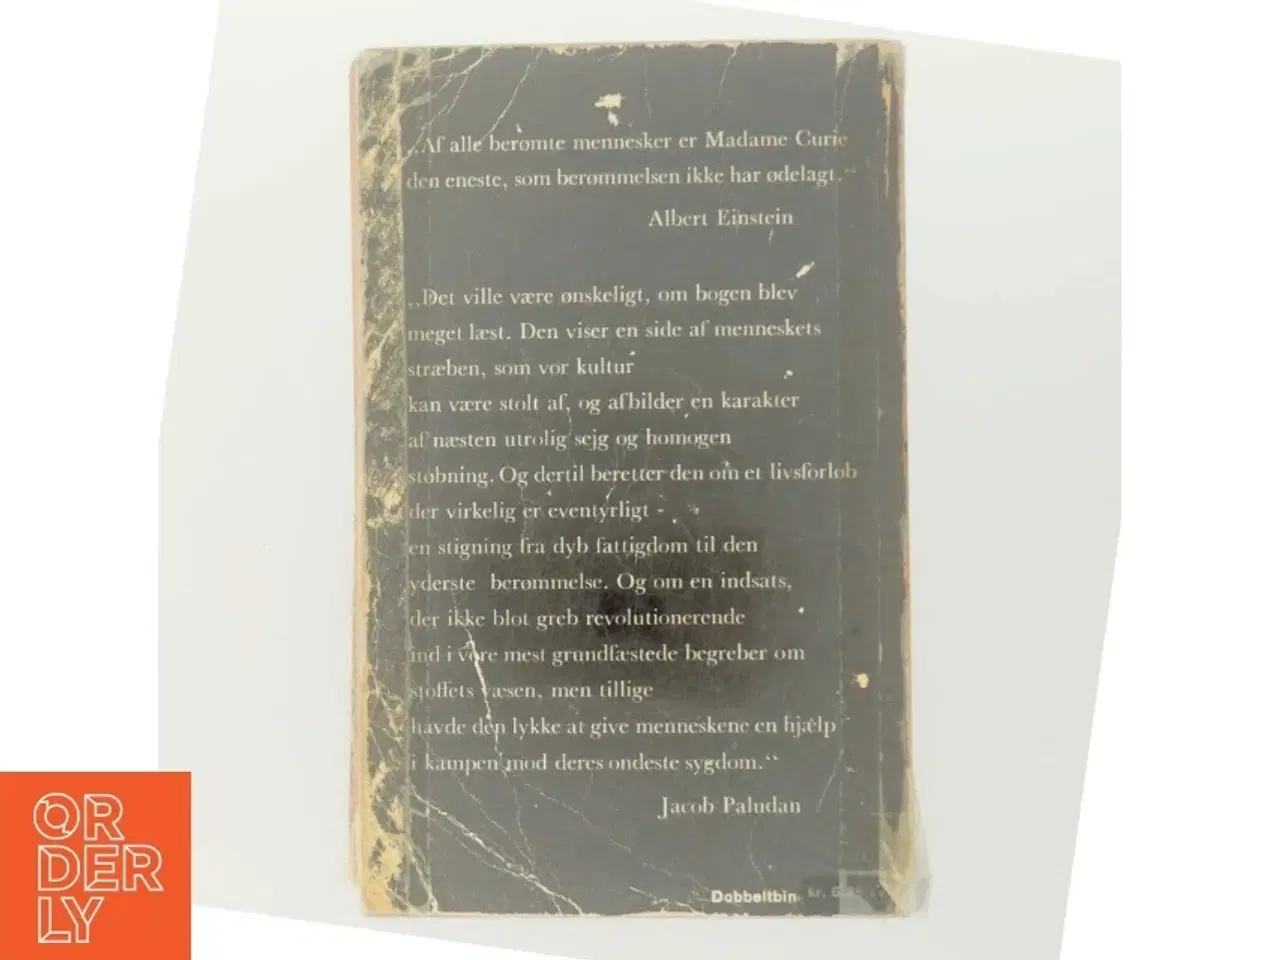 „Af alle berømte mennesker er Madame Curie
den eneste, som berømmelsen ikke har ødelagt.“
Albert Einstein
„Det ville være ønskeligt, om bogen blev
meget læst. Den viser en side af menneskets
stræben, som vor kultur
kan være stolt af, og afbilder en karakter
af næsten utrolig sejg og homogen
støbning. Og dertil beretter den om et livsforløb
der virkelig er eventyrligt -
en stigning fra dyb fattigdom til den
yderste berømmelse. Og om en indsats,
der ikke blot greb revolutionerende
ind i vore mest grundfæstede begreber om
stoffets væsen, men tillige
havde den lykke at give menneskene en hjælp
i kampen mod deres ondeste sygdom.“
Jacob Paludan
Dobbeltbin kr.
ORDERLY